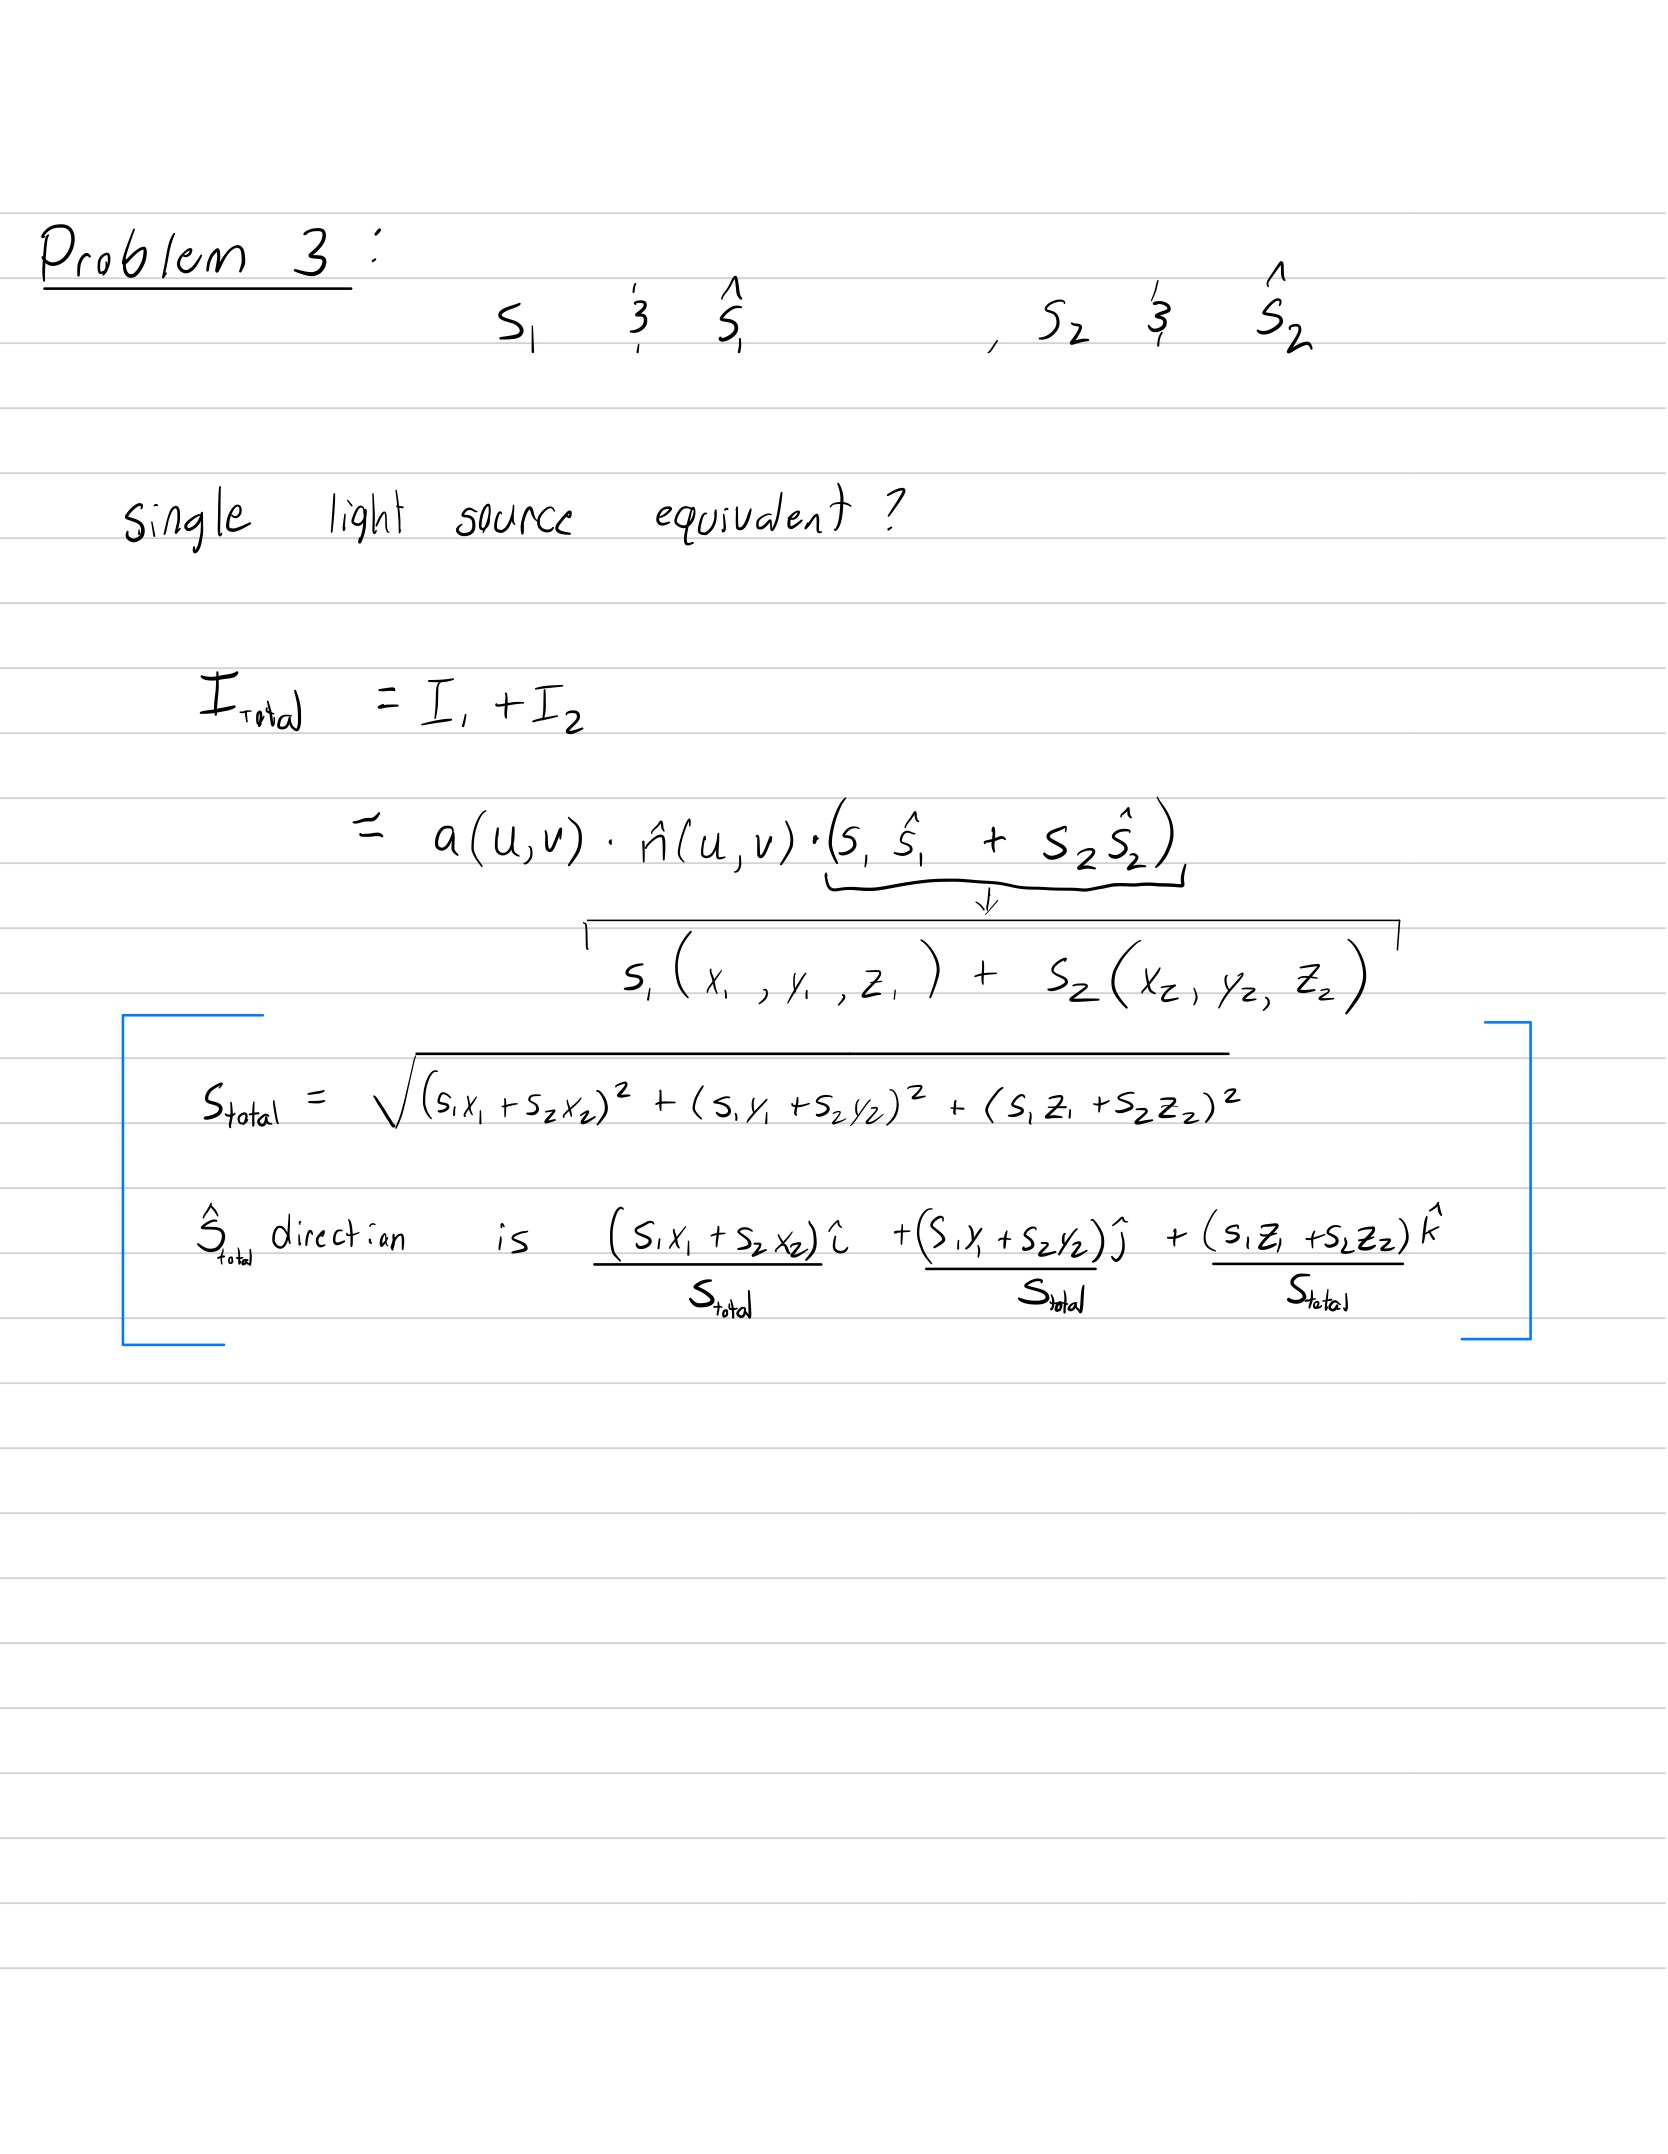 Problem 3 :
s₁ & ŝ₁ , s₂ & ŝ₂
single light source equivalent ?
I_Total = I₁ + I₂
= a(u,v) · n̂(u,v) · (s₁ ŝ₁ + s₂ ŝ₂)
↓
s₁ (x₁ , y₁ , z₁) + s₂ (x₂, y₂, z₂)
s_total = √((s₁x₁ + s₂x₂)² + (s₁y₁ + s₂y₂)² + (s₁z₁ + s₂z₂)²)
ŝ_total direction is (s₁x₁ + s₂x₂) î / s_total + (s₁y₁ + s₂y₂) ĵ / s_total + (s₁z₁ + s₂z₂) k̂ / s_total